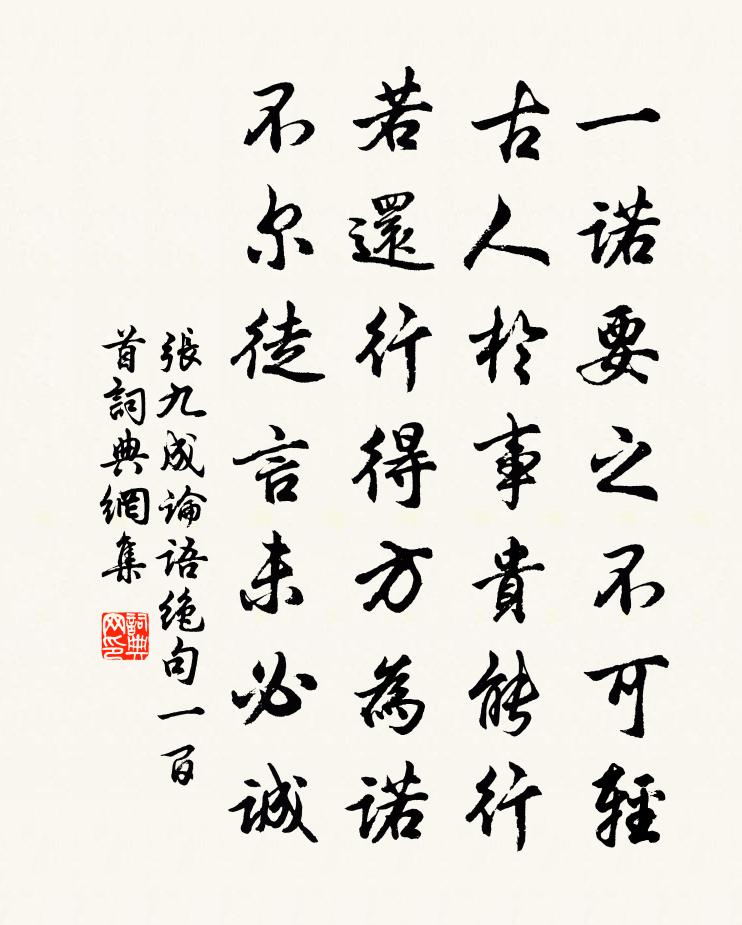 一諾要之不可輕
古人於事貴能行
若還行得方為諾
不尔徒言未必誠
張九成論語絶句一百
首詞典網集
詞典
网印